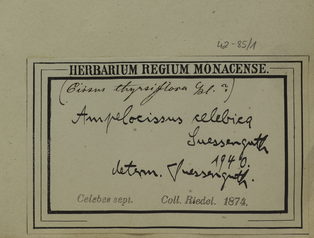 42-85/1
HERBARIUM REGIUM MONACENSE.
(Cissus thyrsiflora Bl. ?)
Ampelocissus celebica
Suessenguth
1940.
determ. Suessenguth.
Celebes sept. Coll. Riedel. 1874.